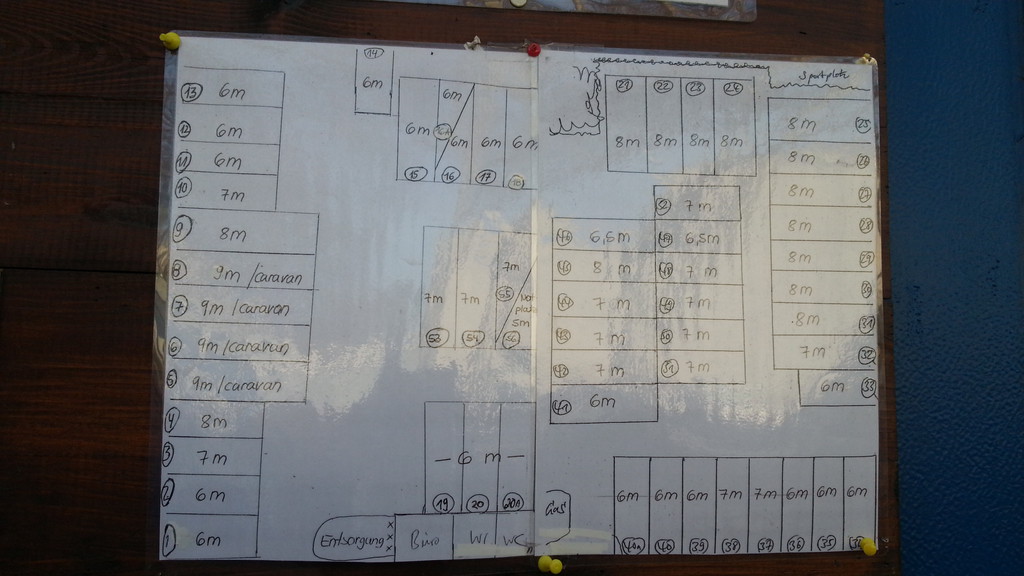 13 6m
12 6m
11 6m
10 7m
9 8m
8 9m/caravan
7 9m/caravan
6 9m/caravan
5 9m/caravan
4 8m
3 7m
2 6m
1 6m
14
6m
6m
6m 6m 6m 6m
15 16 17 18
7m
7m 7m 55
5m
53 54
— 6 m —
19 20 20a
Entsorgung
Büro WC
Gas
21 22 23 24
8m 8m 8m 8m
Sportplatz
8m 25
8m 26
8m 27
8m 28
8m 29
8m 30
8m 31
7m 32
6m 33
52 7m
46 6,5m 47 6,5m
45 8 m 48 7 m
44 7 m 49 7m
43 7 m 50 7m
42 7 m 51 7m
41 6m
6m 6m 6m 7m 7m 6m 6m 6m
40a 40 39 38 37 36 35 34